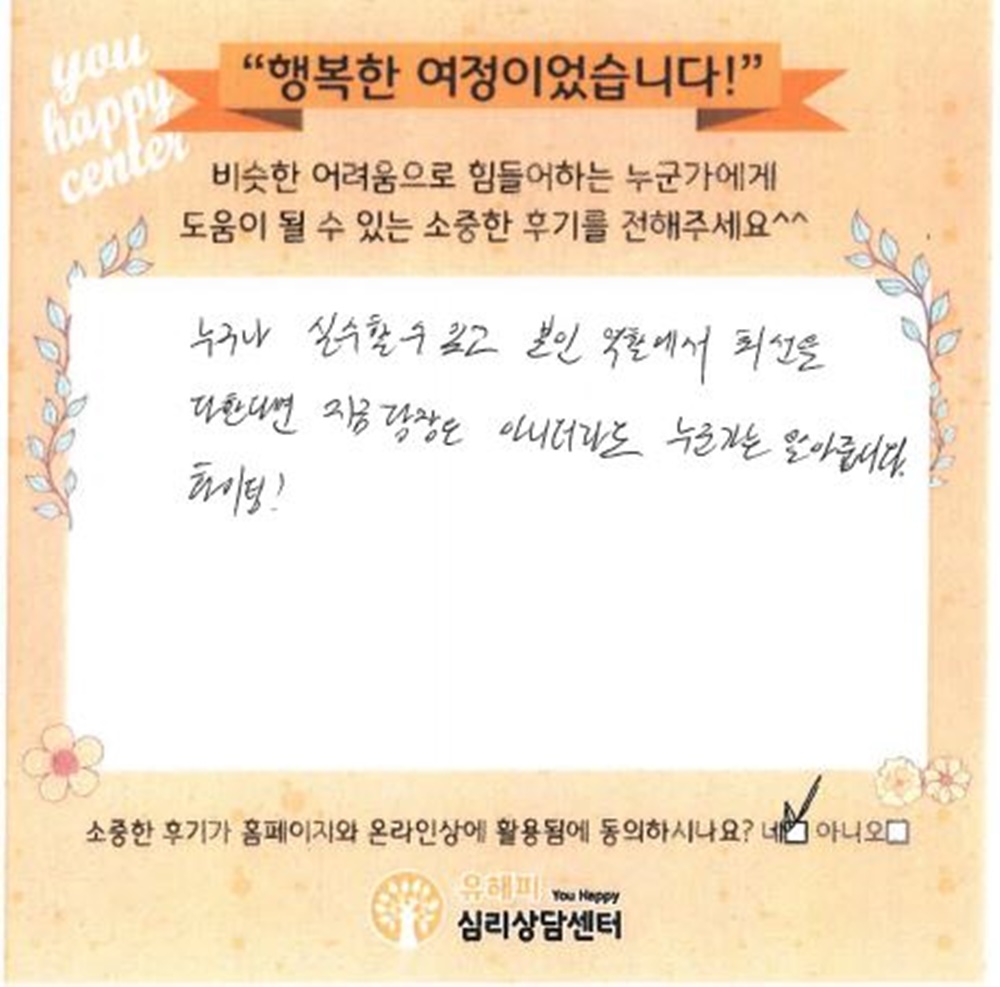 you
happy
center
“행복한 여정이었습니다!”
비슷한 어려움으로 힘들어하는 누군가에게
도움이 될 수 있는 소중한 후기를 전해주세요^^
누구나 실수할 수 있고 본인 역할에서 최선을
다한다면 지금 당장은 아니더라도 누군가는 알아줍니다.
화이팅!
소중한 후기가 홈페이지와 온라인상에 활용됨에 동의하시나요? 네 아니오
유해피 You Happy
심리상담센터